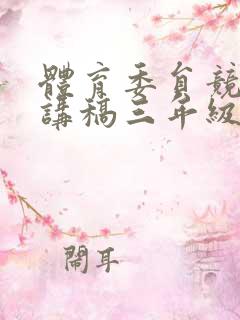 體育委員競
講稿三年級
鬧耳